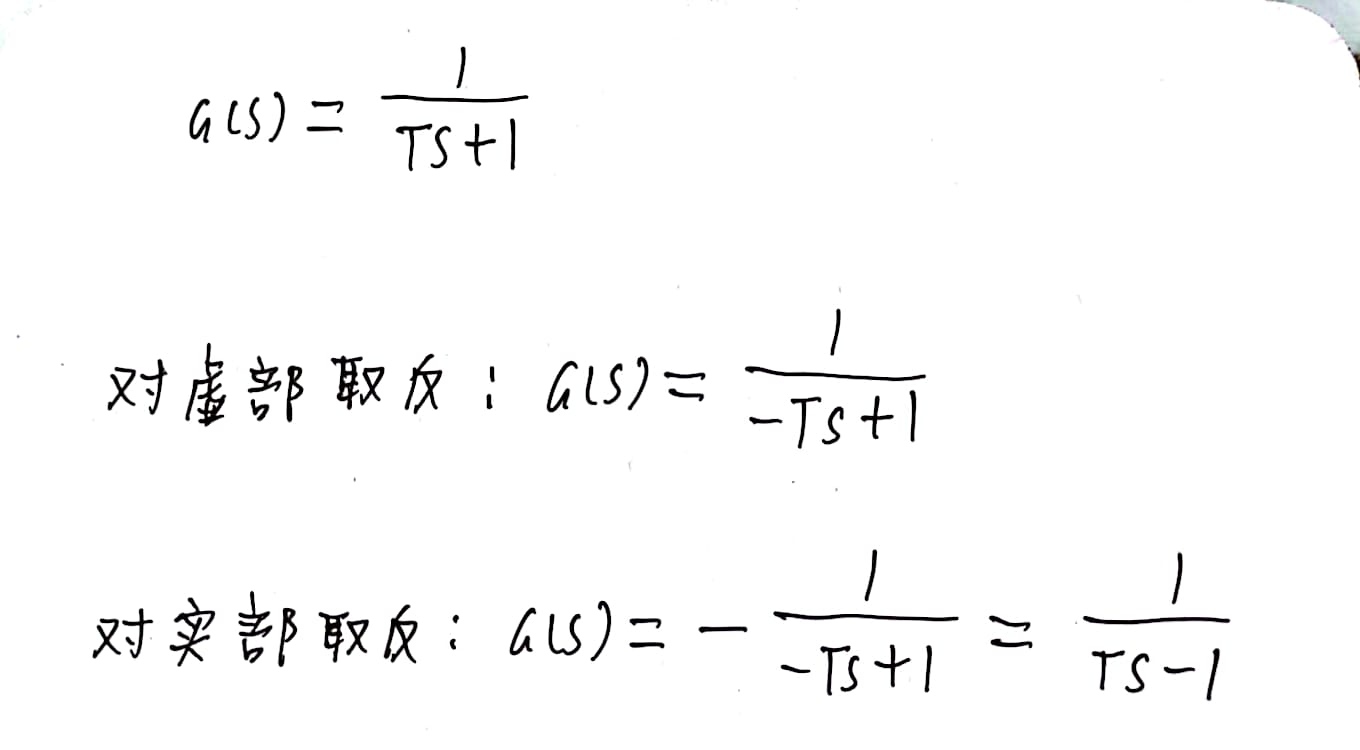 G(S) = 1/(TS+1)
对虚部取反: G(S) = 1/(-TS+1)
对实部取反: G(S) = - 1/(-TS+1) = 1/(TS-1)